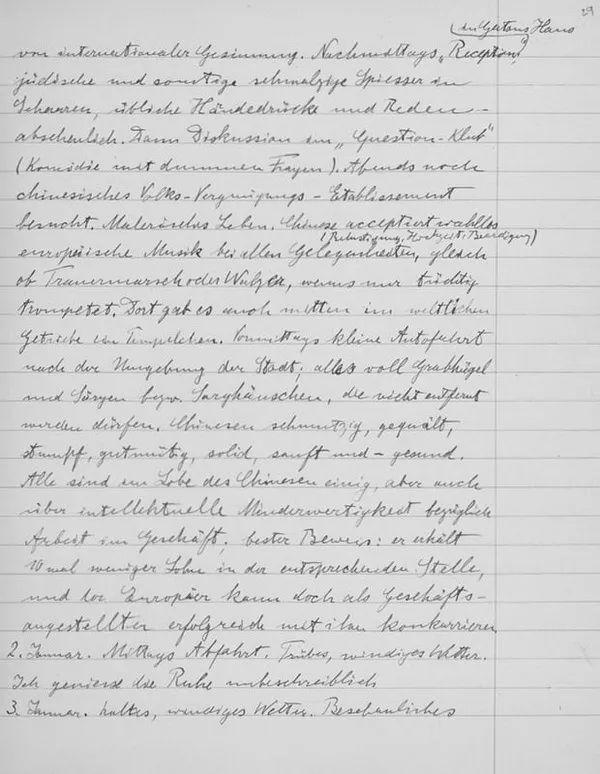 29
(in Gattons Haus
von internationaler Gesinnung. Nachmittags „Reception"
jüdische und sonstige schmalzige Spiesser in
Scharen, übliche Händedrücke und Reden -
abscheulich. Dann Diskussion im „Question-Klub"
(Komödie mit dummen Fragen). Abends noch
chinesisches Volks-Vergnügungs-Etablissement
besucht. Malerisches Leben. Chinese acceptiert wahllos
(Belustigung, Hochzeit, Beerdigung)
europäische Musik bei allen Gelegenheiten, gleich
ob Trauermarsch oder Walzer, wenns nur tüchtig
trompetet. Dort gab es auch mitten im weltlichen
Getriebe ein Tempelchen. Vormittags kleine Autofahrt
nach der Umgebung der Stadt; alles voll Grabhügel
und Särgen bezw. Sarghäuschen, die nicht entfernt
werden dürfen. Chinesen schmutzig, gequält,
stumpf, gutmütig, solid, sanft und - gesund.
Alle sind im Lobe des Chinesen einig, aber auch
über intellektuelle Minderwertigkeit bezüglich
Arbeit im Geschäft; bester Beweis: er erhält
10 mal weniger Lohn in der entsprechenden Stelle,
und der Europäer kann doch als Geschäfts-
angestellter erfolgreich mit ihm konkurrieren
2. Januar. Mittags Abfahrt. Trübes, windiges Wetter.
Ich geniesse die Ruhe unbeschreiblich
3. Januar. kaltes, windiges Wetter. Beschauliches